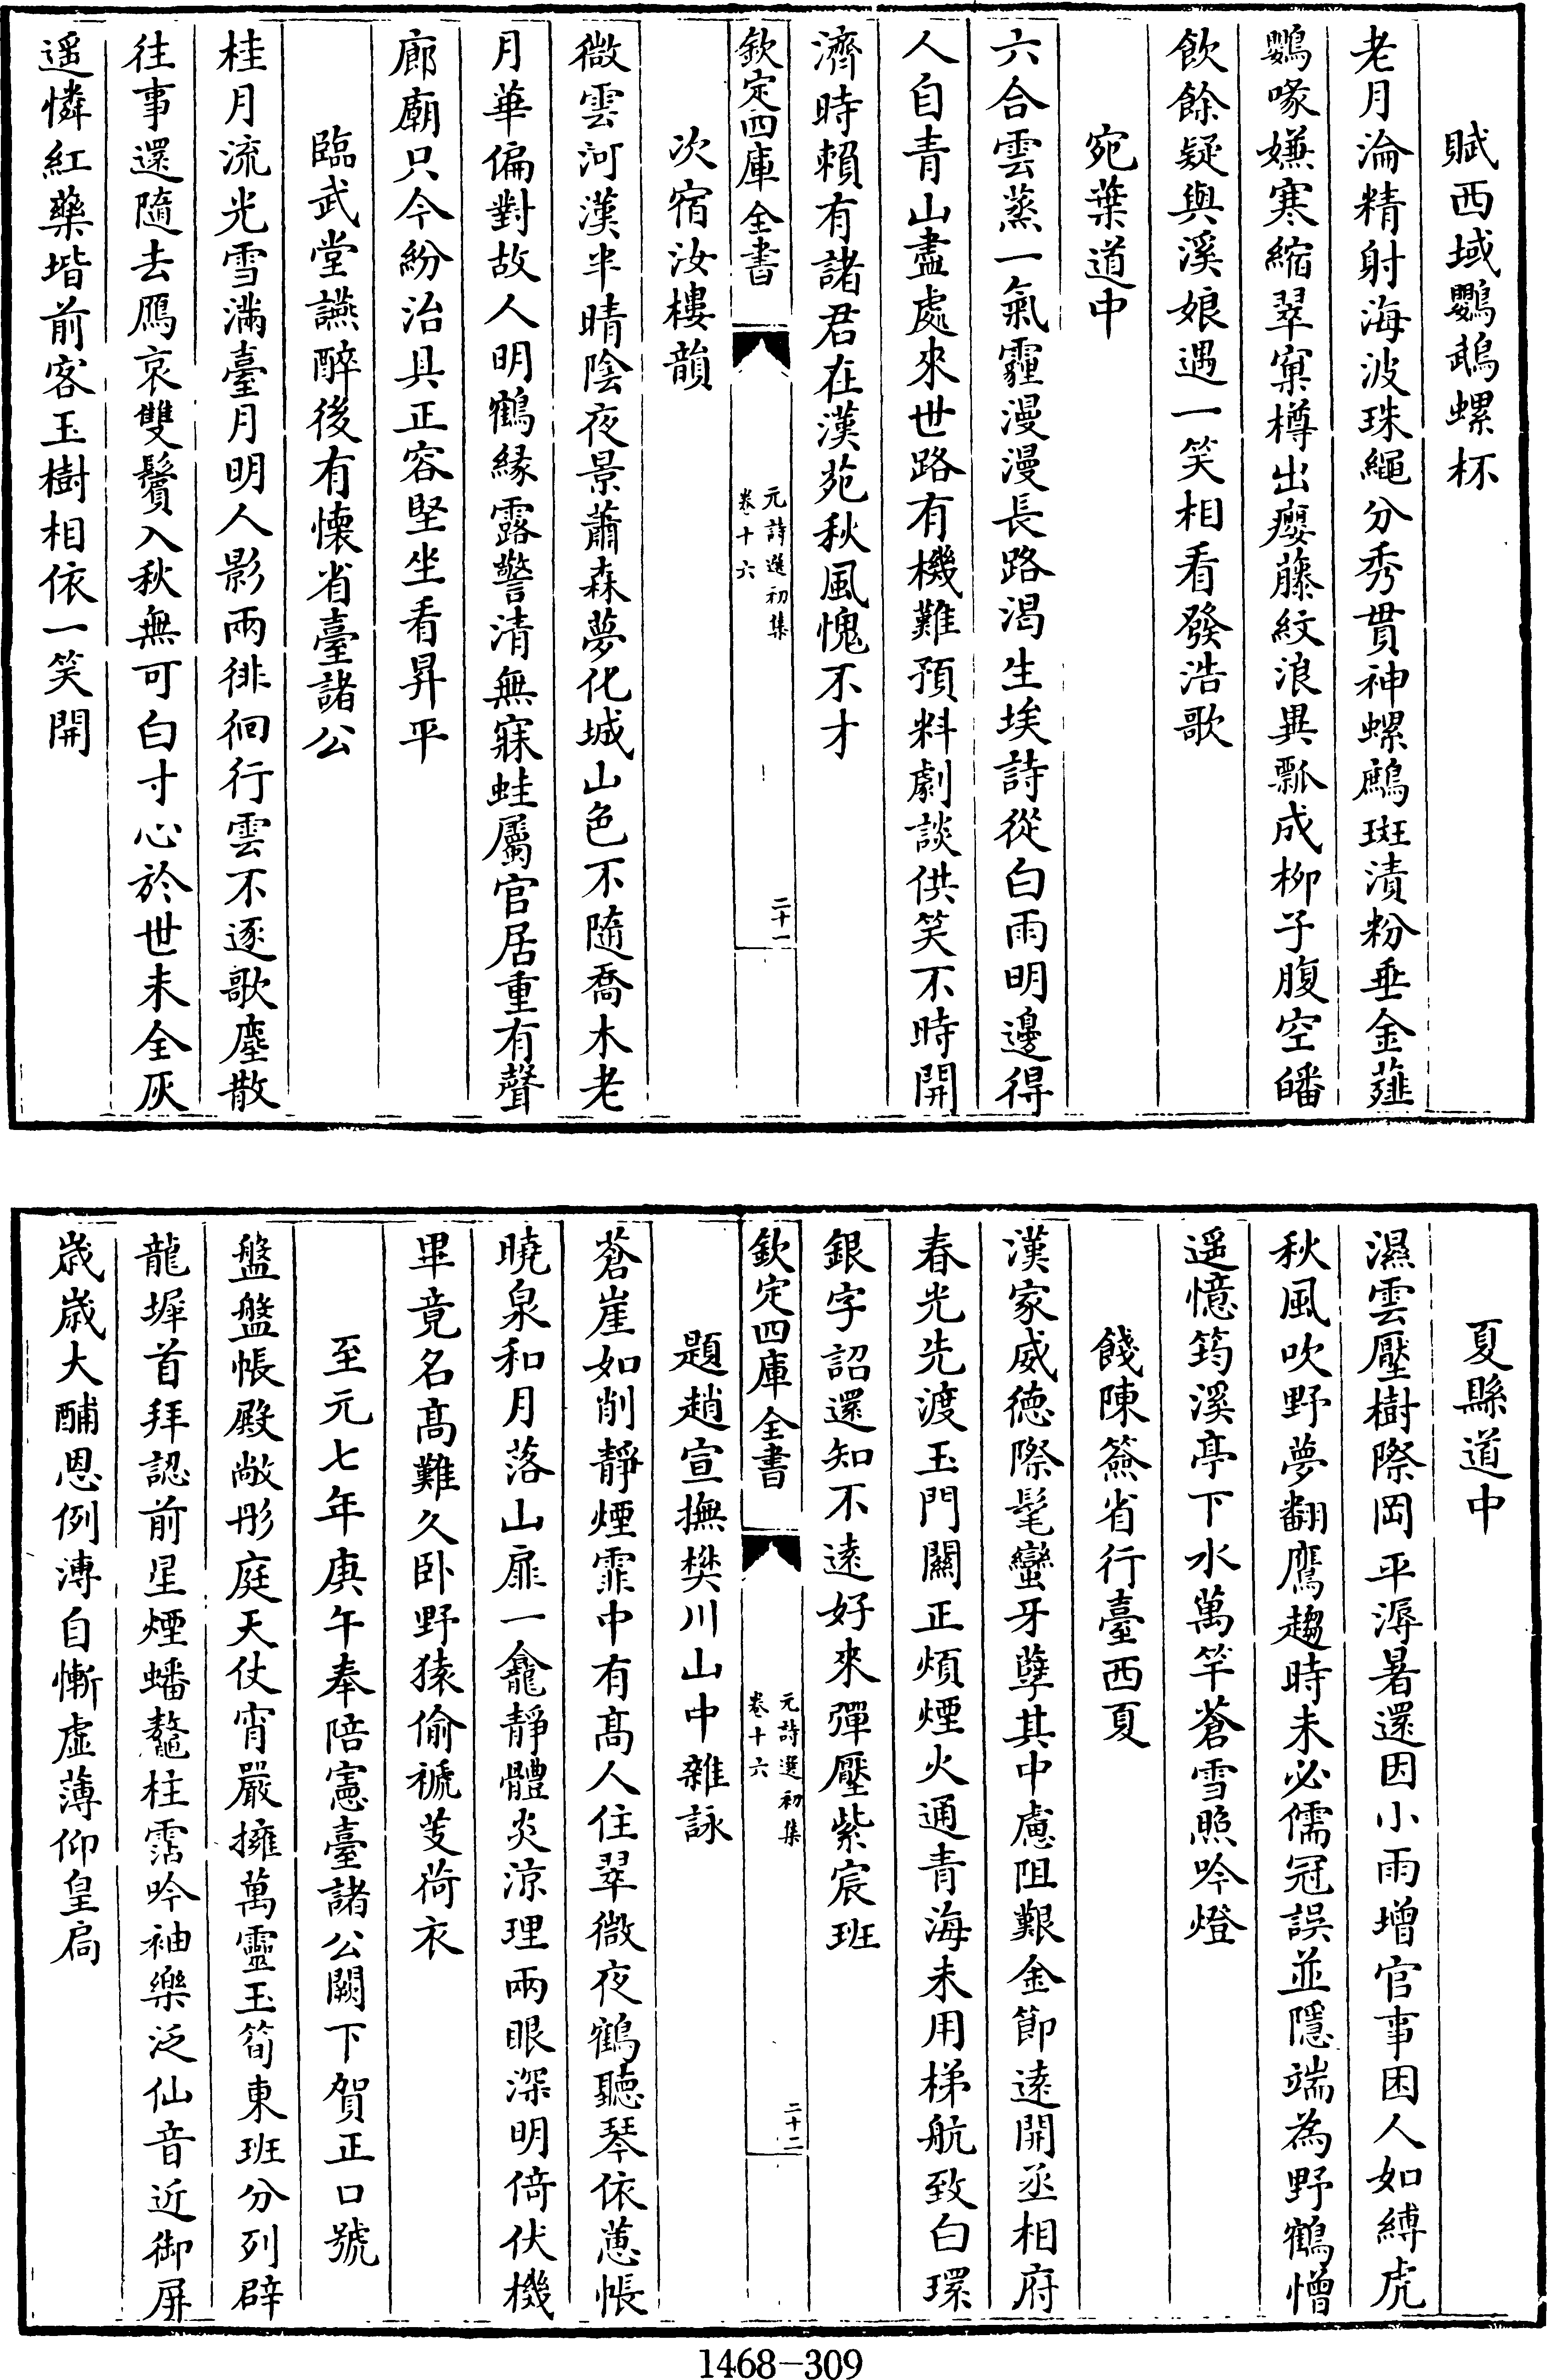 賦西域鸚鵡螺杯
老月淪精射海波珠繩分秀貫神螺鷓斑漬粉垂金薤
鸚喙嫌寒縮翠窠樽出癭藤紋浪異瓢成柳子腹空皤
飲餘疑與溪娘遇一笑相看發浩歌
宛葉道中
六合雲蒸一氣霾漫漫長路渴生埃詩從白雨明邊得
人自青山盡處來世路有機難預料劇談供笑不時開
濟時賴有諸君在漢苑秋風愧不才
欽定四庫全書
元詩選初集
卷十六
二十一
次宿汝樓韻
微雲河漢半晴陰夜景蕭森夢化城山色不隨喬木老
月華偏對故人明鶴緣露警清無寐蛙屬官居重有聲
廊廟只今紛治具正容堅坐看昇平
臨武堂讌醉後有懷省臺諸公
桂月流光雪滿臺月明人影兩徘徊行雲不逐歌塵散
往事還隨去鴈哀雙鬢入秋無可白寸心於世未全灰
遥憐紅藥堦前客玉樹相依一笑開
夏縣道中
濕雲壓樹際岡平溽暑還因小雨增官事困人如縛虎
秋風吹野夢翻鷹趨時未必儒冠誤並隱端為野鶴憎
遥憶筠溪亭下水萬竿蒼雪照吟燈
餞陳簽省行臺西夏
漢家威德際髦蠻牙孽其中慮阻艱金節遠開丞相府
春光先渡玉門關正煩煙火通青海未用梯航致白環
銀字詔還知不遠好來彈壓紫宸班
欽定四庫全書
元詩選初集
卷十六
二十二
題趙宣撫樊川山中雜詠
蒼崖如削靜煙霏中有高人住翠微夜鶴聽琴依蕙帳
曉泉和月落山扉一龕靜體炎涼理兩眼深明倚伏機
畢竟名高難久卧野猿偷褫芰荷衣
至元七年庚午奉陪憲臺諸公闕下賀正口號
盤盤帳殿敞彤庭天仗宵嚴擁萬靈玉筍東班分列辟
龍墀首拜認前星煙蟠鼇柱霑吟袖樂泛仙音近御屏
歲歲大酺恩例溥自慚虛薄仰皇扃
1468-309